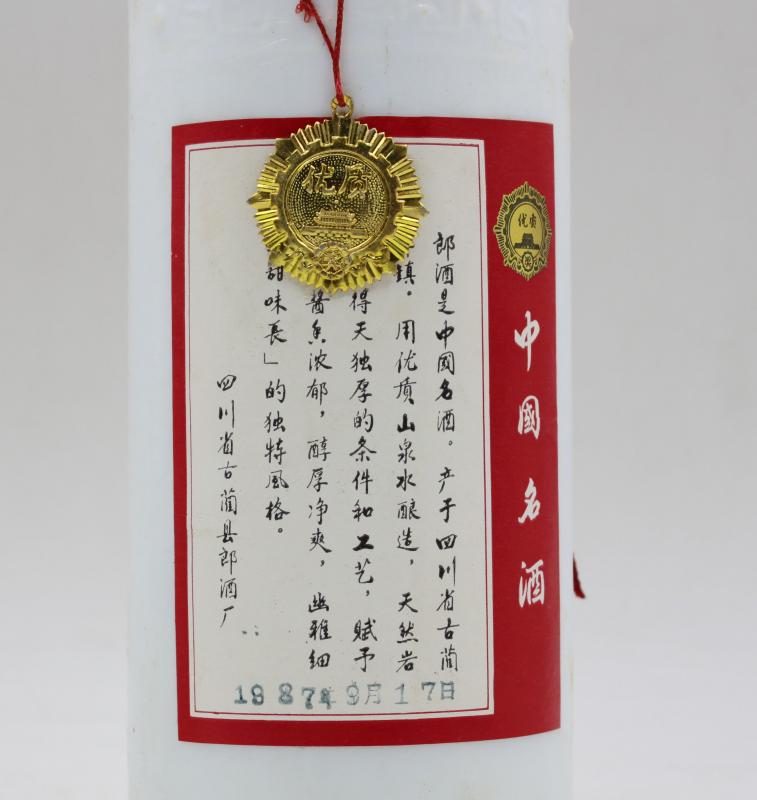 优质
优质
中國名酒
郎酒是中國名酒。产于四川省古蔺
镇。用优质山泉水酿造，天然岩
得天独厚的条件和工艺，赋予
酱香浓郁，醇厚净爽，幽雅细
甜味长」的独特风格。
四川省古蔺县郎酒厂
1987年9月17日